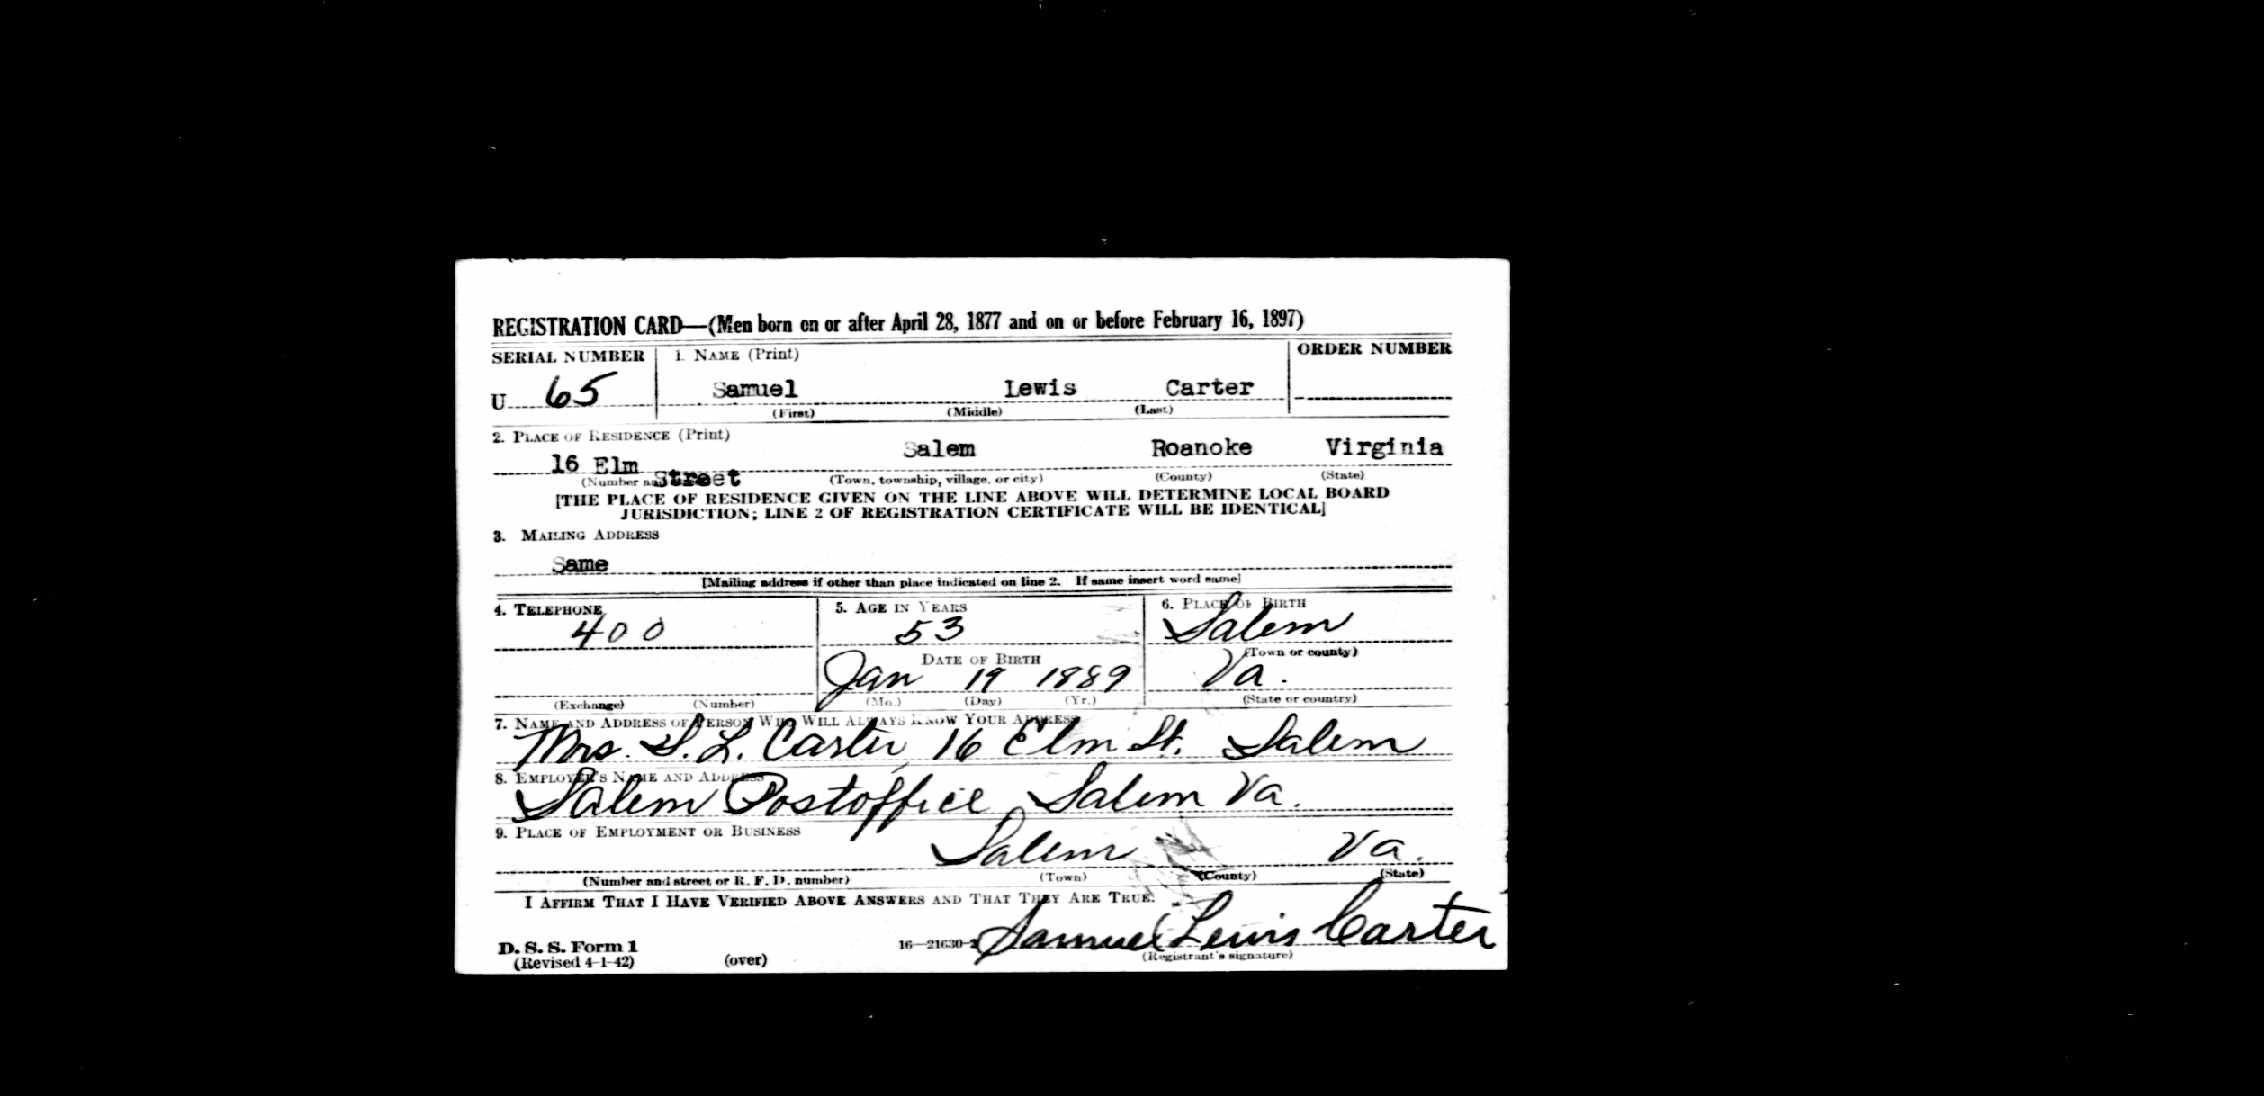 REGISTRATION CARD—(Men born on or after April 28, 1877 and on or before February 16, 1897)
SERIAL NUMBER 1. NAME (Print) ORDER NUMBER
U 65 Samuel Lewis Carter
(First) (Middle) (Last)
2. PLACE OF RESIDENCE (Print)
16 Elm Street Salem Roanoke Virginia
(Number (Town, township, village, or city) (County) (State)
[THE PLACE OF RESIDENCE GIVEN ON THE LINE ABOVE WILL DETERMINE LOCAL BOARD
JURISDICTION; LINE 2 OF REGISTRATION CERTIFICATE WILL BE IDENTICAL]
3. MAILING ADDRESS
Same
[Mailing address if other than place indicated on line 2. If same insert word same]
4. TELEPHONE 5. AGE IN YEARS 6. PLACE OF BIRTH
400 53 Salem
DATE OF BIRTH (Town or county)
Jan 19 1889 Va.
(Exchange) (Number) (Mo.) (Day) (Yr.) (State or country)
7. NAME AND ADDRESS OF PERSON WHO WILL ALWAYS KNOW YOUR ADDRESS
Mrs. S. L. Carter 16 Elm St. Salem
8. EMPLOYER'S NAME AND ADDRESS
Salem Postoffice Salem Va.
9. PLACE OF EMPLOYMENT OR BUSINESS
Salem Va.
(Number and street or R. F. D. number) (Town) (County) (State)
I AFFIRM THAT I HAVE VERIFIED ABOVE ANSWERS AND THAT THEY ARE TRUE.
D. S. S. Form 1 16—21630-2 Samuel Lewis Carter
(Revised 4-1-42) (over) (Registrant's signature)